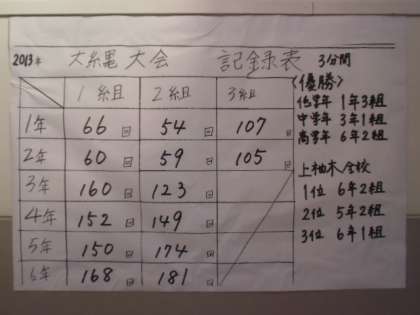 2013年 大縄大会 記録表 3分間
1組 2組 3組
1年 66回 54回 107回
2年 60回 59回 105回
3年 160回 123回
4年 152回 149回
5年 150回 174回
6年 168回 181回
〈優勝〉
低学年 1年3組
中学年 3年1組
高学年 6年2組
上柚木全校
1位 6年2組
2位 5年2組
3位 6年1組